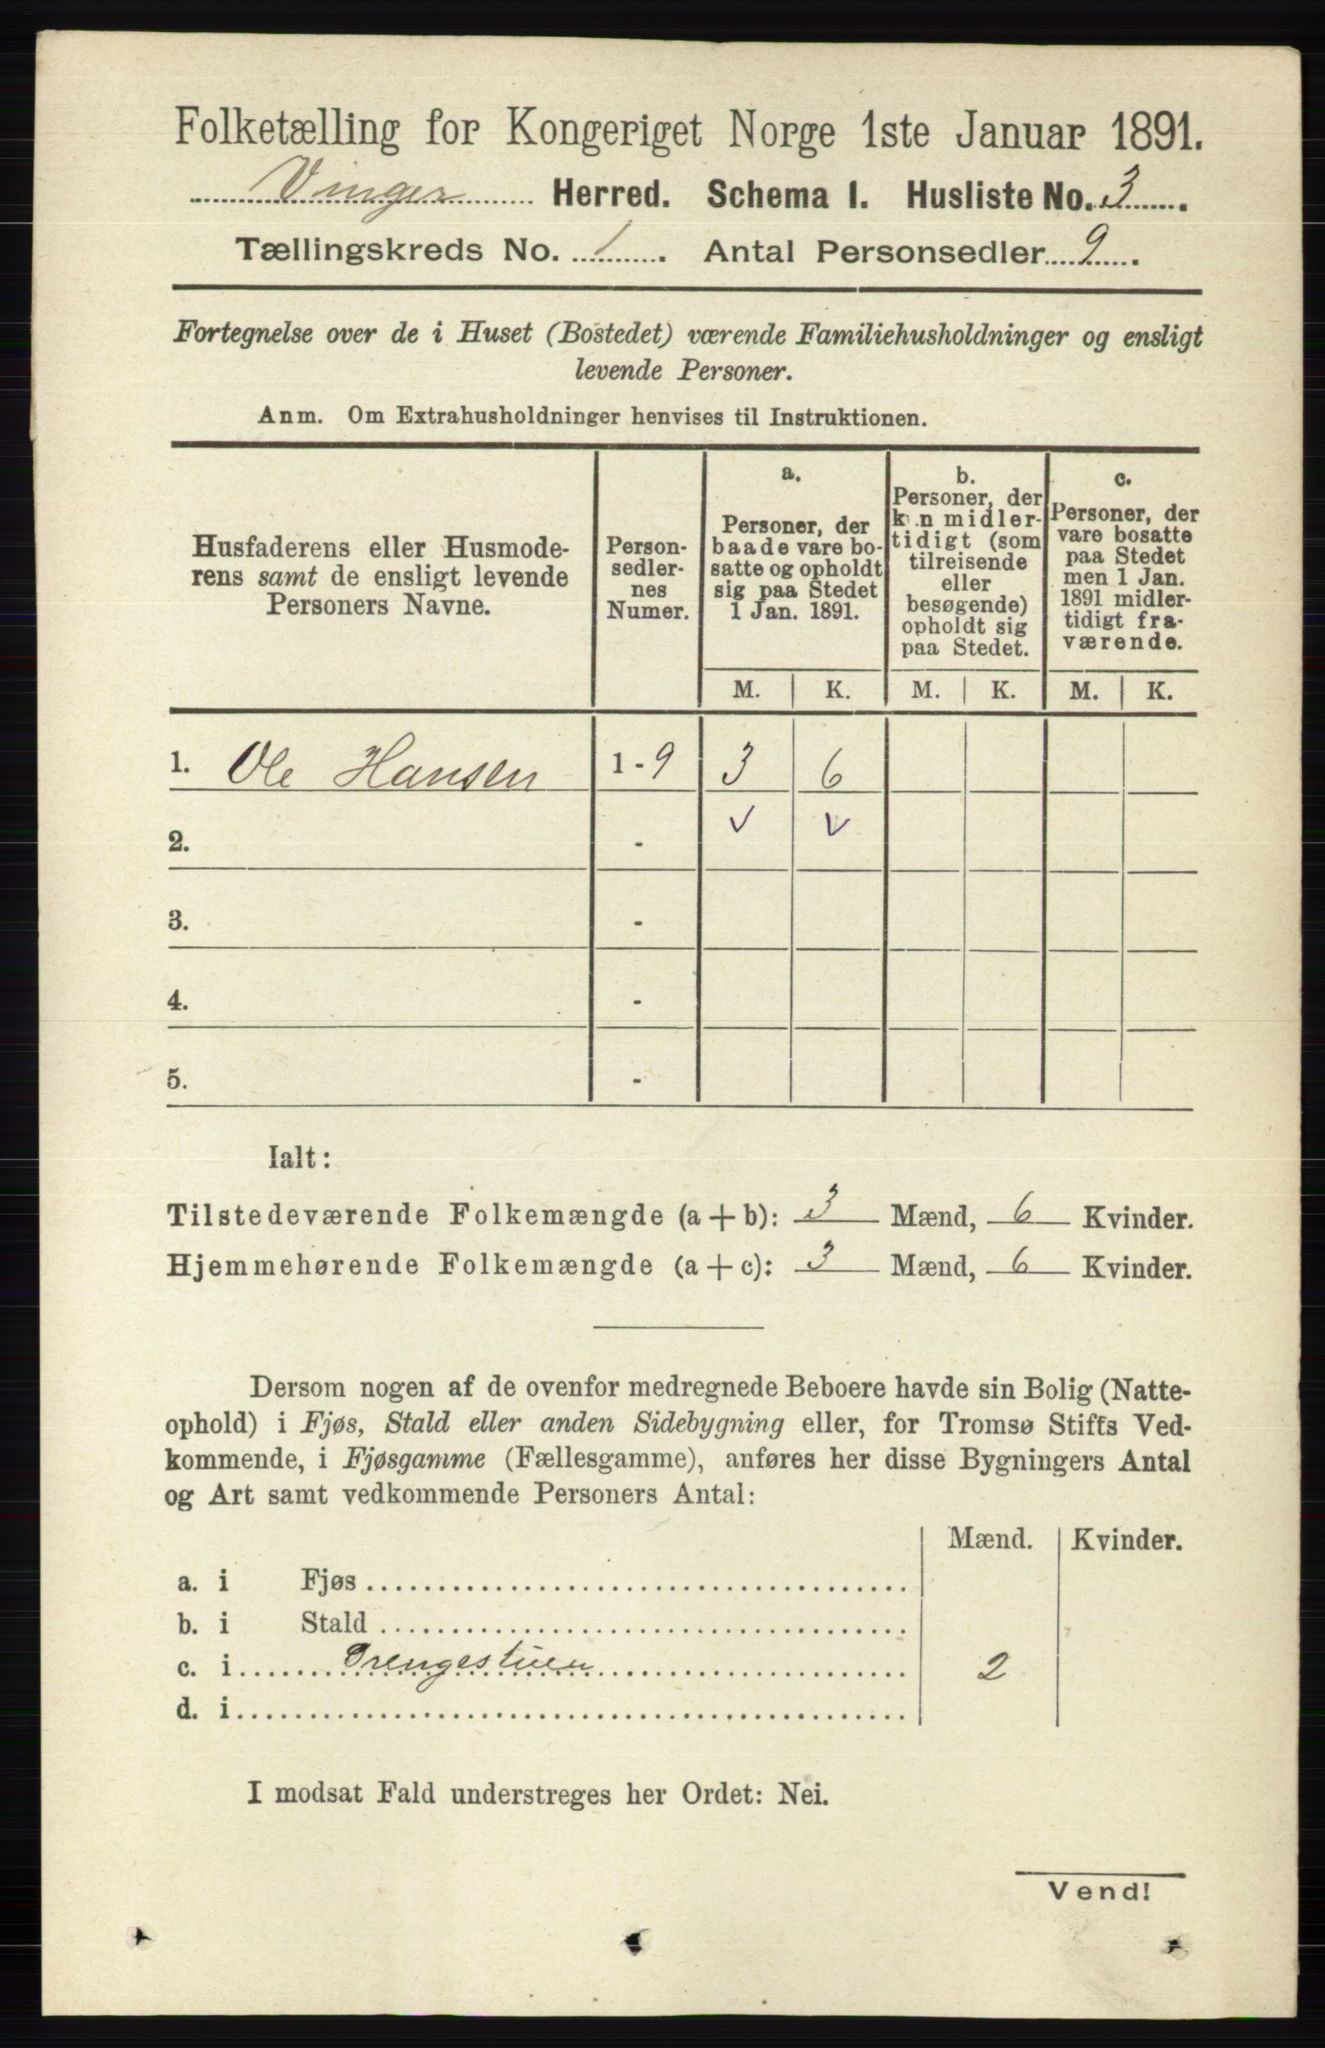 Folketælling for Kongeriget Norge 1ste Januar 1891.
Vinger Herred. Schema I. Husliste No. 3
Tællingskreds No. 1. Antal Personsedler 9.
Fortegnelse over de i Huset (Bostedet) værende Familiehusholdninger og ensligt
levende Personer.
Anm. Om Extrahusholdninger henvises til Instruktionen.
Husfaderens eller Husmode-
rens samt de ensligt levende
Personers Navne.
Person-
sedler-
nes
Numer.
a.
Personer, der
baade vare bo-
satte og opholdt
sig paa Stedet
1 Jan. 1891.
b.
Personer, der
kun midler-
tidigt (som
tilreisende
eller
besøgende)
opholdt sig
paa Stedet.
c.
Personer, der
vare bosatte
paa Stedet
men 1 Jan.
1891 midler-
tidigt fra-
værende.
M. K. M. K. M. K.
1. Ole Hansen 1-9 3 6
2. - v v
3. -
4. -
5. -
Ialt:
Tilstedeværende Folkemængde (a + b): 3 Mænd, 6 Kvinder.
Hjemmehørende Folkemængde (a + c): 3 Mænd, 6 Kvinder.
Dersom nogen af de ovenfor medregnede Beboere havde sin Bolig (Natte-
ophold) i Fjøs, Stald eller anden Sidebygning eller, for Tromsø Stifts Ved-
kommende, i Fjøsgamme (Fællesgamme), anføres her disse Bygningers Antal
og Art samt vedkommende Personers Antal:
Mænd. Kvinder.
a. i Fjøs
b. i Stald
c. i Drengestuen 2
d. i
I modsat Fald understreges her Ordet: Nei.
Vend!